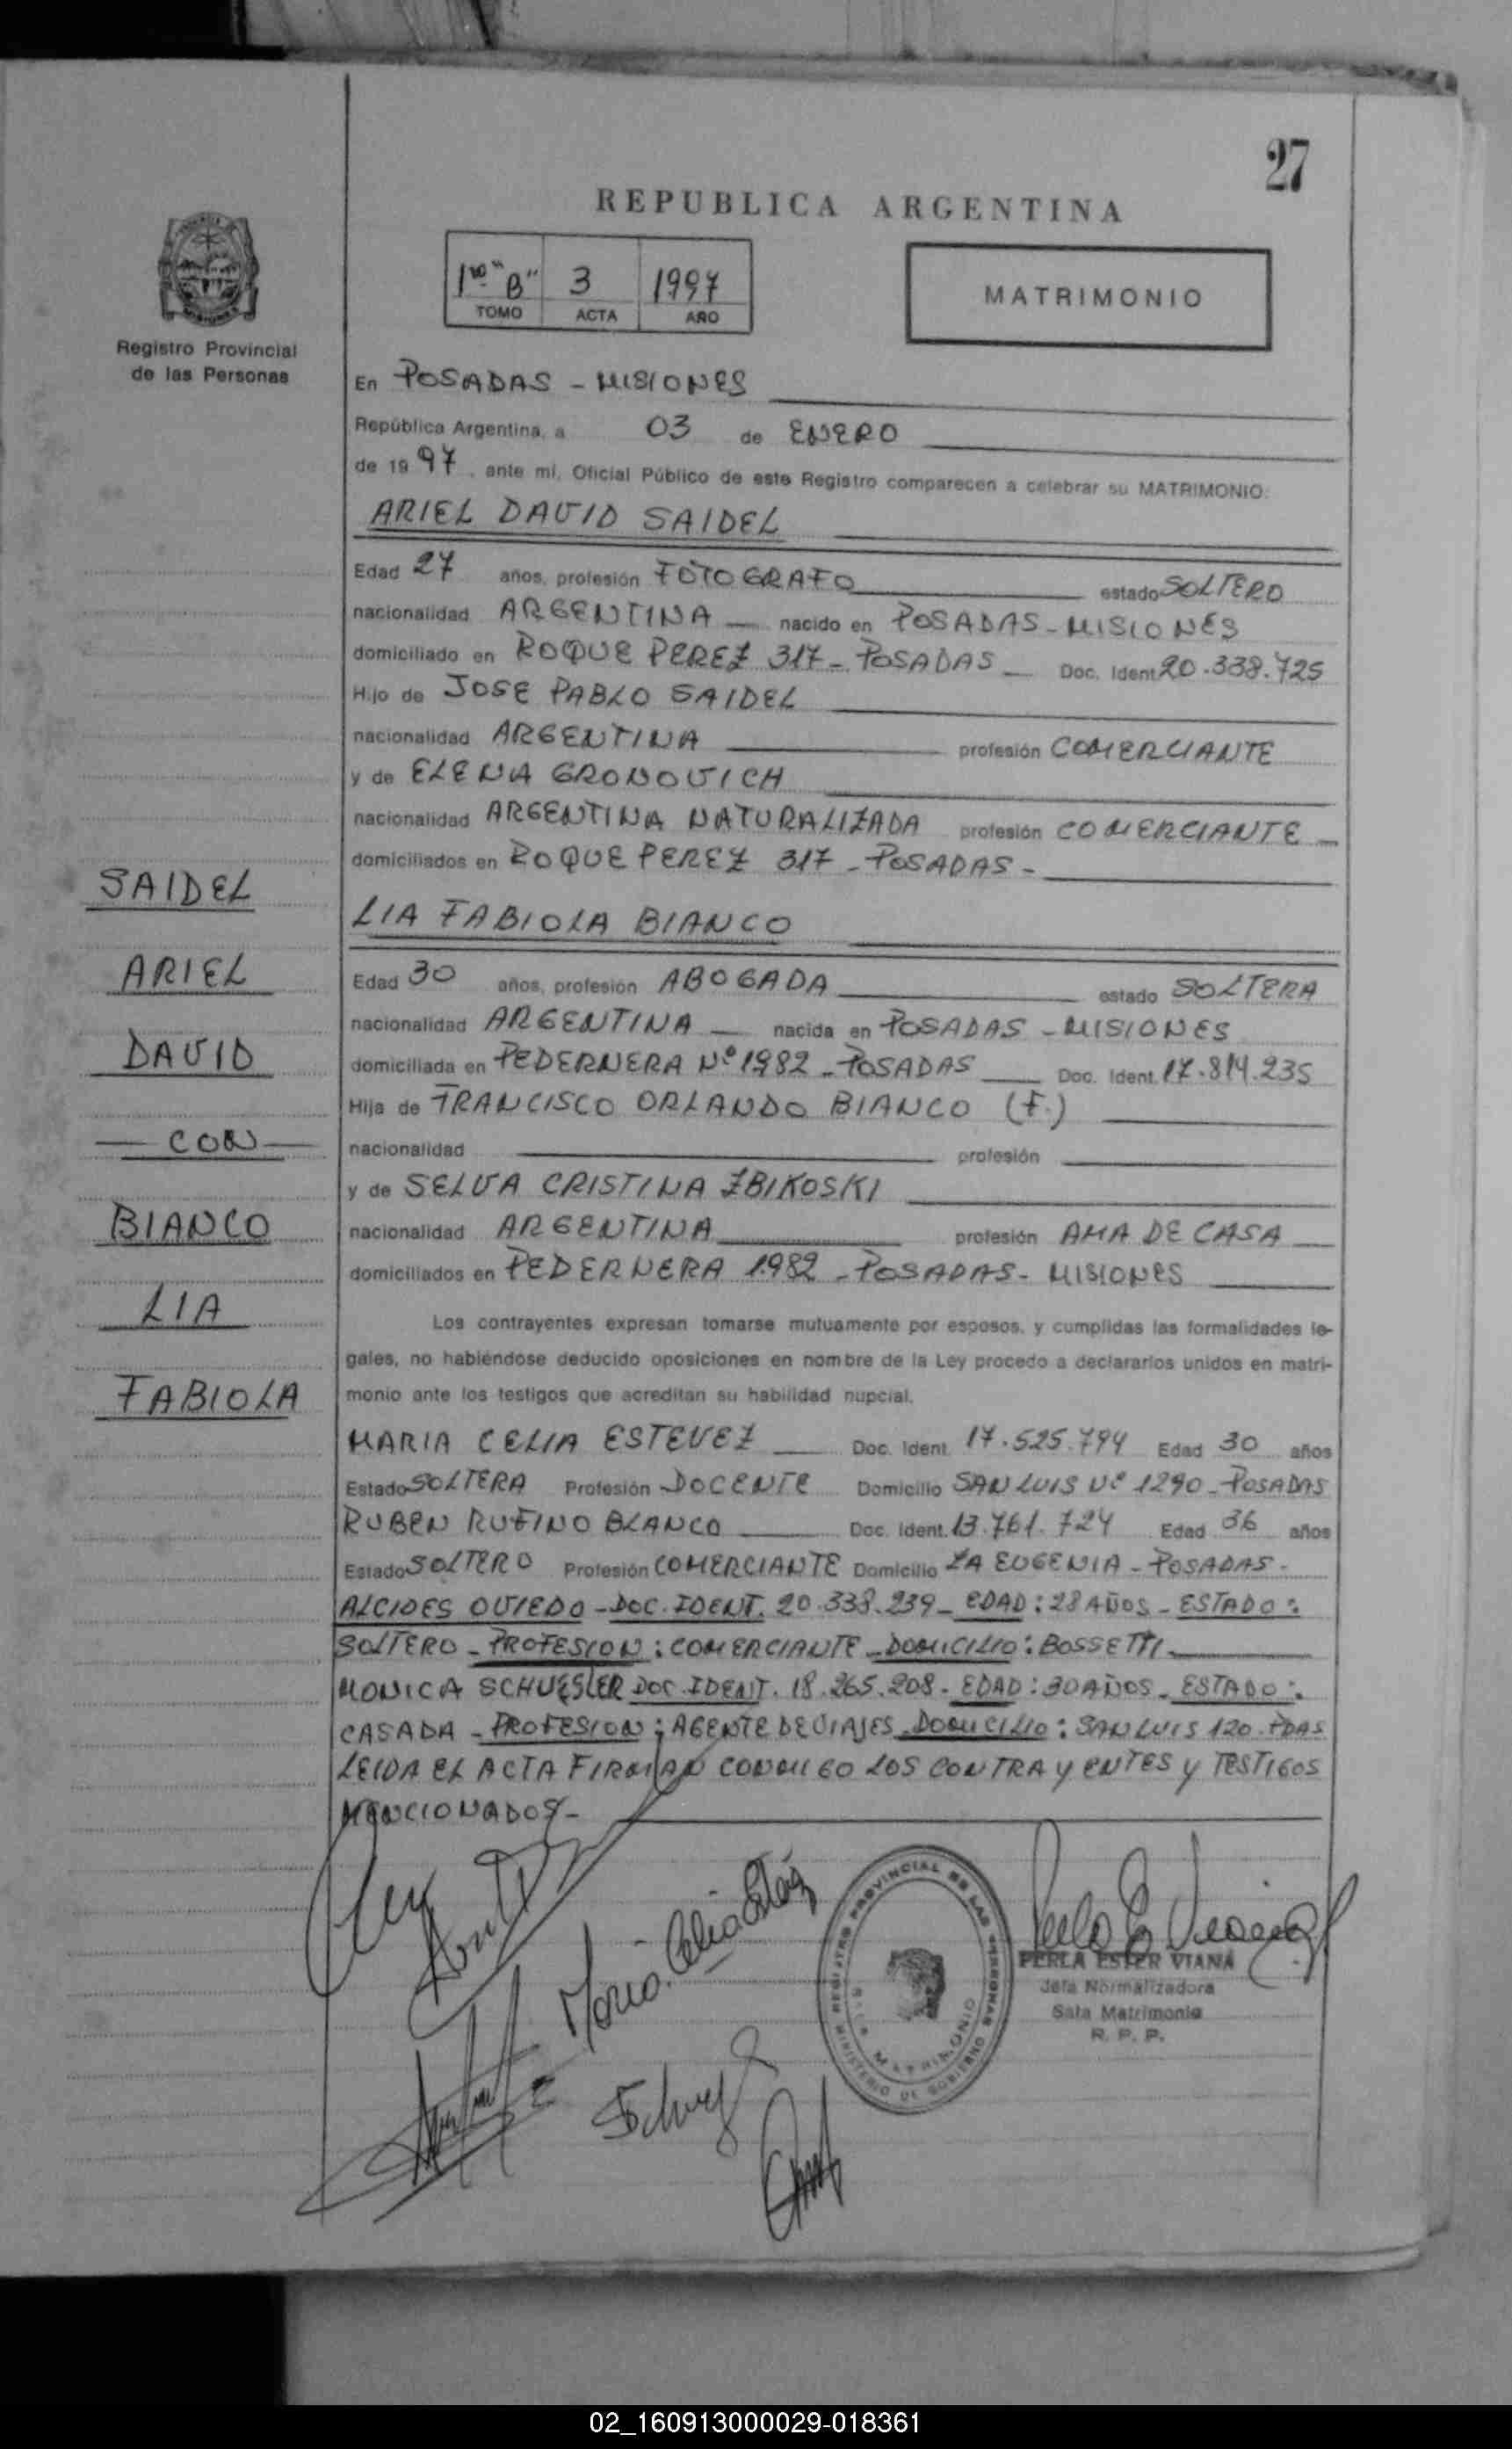 27
REPUBLICA ARGENTINA
1ro "B" 3 1997
TOMO ACTA AÑO
MATRIMONIO
Registro Provincial
de las Personas
En POSADAS - MISIONES
República Argentina, a 03 de ENERO
de 1997, ante mí, Oficial Público de este Registro comparecen a celebrar su MATRIMONIO:
ARIEL DAVID SAIDEL
Edad 27 años, profesión FOTOGRAFO estado SOLTERO
nacionalidad ARGENTINA nacido en POSADAS - MISIONES
domiciliado en ROQUE PEREZ 317 - POSADAS Doc. Ident. 20.338.725
Hijo de JOSE PABLO SAIDEL
nacionalidad ARGENTINA profesión COMERCIANTE
y de ELENA GRONOVICH
nacionalidad ARGENTINA NATURALIZADA profesión COMERCIANTE
domiciliados en ROQUE PEREZ 317 - POSADAS -
LIA FABIOLA BIANCO
Edad 30 años, profesión ABOGADA estado SOLTERA
nacionalidad ARGENTINA nacida en POSADAS - MISIONES
domiciliada en PEDERNERA Nº 1982 - POSADAS Doc. Ident. 17.814.235
Hija de FRANCISCO ORLANDO BIANCO (F.)
nacionalidad profesión
y de SELVA CRISTINA ZBIKOSKI
nacionalidad ARGENTINA profesión AMA DE CASA
domiciliados en PEDERNERA 1982 - POSADAS - MISIONES
Los contrayentes expresan tomarse mutuamente por esposos, y cumplidas las formalidades le-
gales, no habiéndose deducido oposiciones en nombre de la Ley procedo a declararlos unidos en matri-
monio ante los testigos que acreditan su habilidad nupcial.
MARIA CELIA ESTEVEZ Doc. Ident. 17.525.794 Edad 30 años
Estado SOLTERA Profesión DOCENTE Domicilio SAN LUIS Nº 1290 - POSADAS
RUBEN RUFINO BLANCO Doc. Ident. 13.761.724 Edad 36 años
Estado SOLTERO Profesión COMERCIANTE Domicilio LA EUGENIA - POSADAS -
ALCIDES OVIEDO - DOC. IDENT. 20.338.239 - EDAD: 28 AÑOS - ESTADO:
SOLTERO - PROFESION: COMERCIANTE - DOMICILIO: BOSSETTI
MONICA SCHUESLER DOC. IDENT. 18.265.208 - EDAD: 30 AÑOS - ESTADO:
CASADA - PROFESION: AGENTE DE VIAJES - DOMICILIO: SAN LUIS 120 - PDAS
LEIDA EL ACTA FIRMAN CONMIGO LOS CONTRAYENTES Y TESTIGOS
MENCIONADOS -
SAIDEL
ARIEL
DAVID
CON
BIANCO
LIA
FABIOLA
Maria Celia
REGISTRO PROVINCIAL DE LAS PERSONAS
MINISTERIO DE GOBIERNO
SALA MATRIMONIO
PERLA ESTER VIANA
Jefa Normalizadora
Sala Matrimonio
R. P. P.
02_160913000029-018361